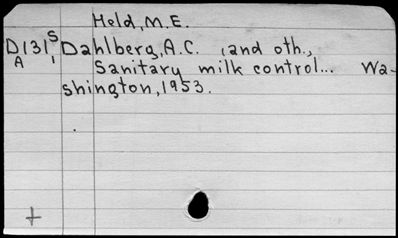 Held, M.E.
D131 S Dahlberg, A.C. , and oth.,
A 1 Sanitary milk control... Wa-
shington, 1953.
+